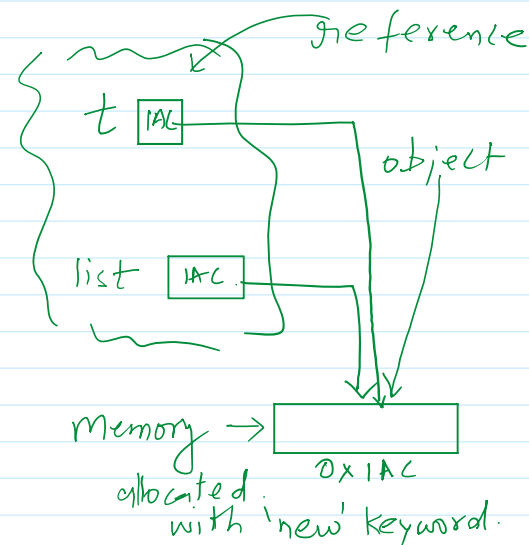 reference
t 1AC
object
list 1AC
Memory
0x1AC
allocated
with 'new' keyword.